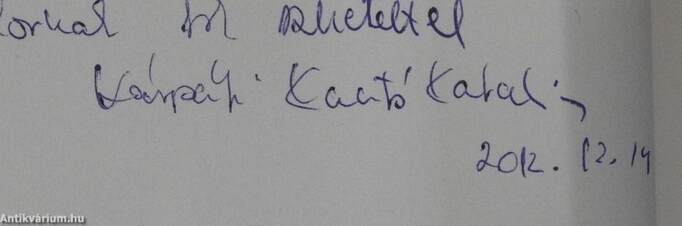 szeretettel
Kárpáti Kantó Katalin
2012. 12. 14
Antikvárium.hu